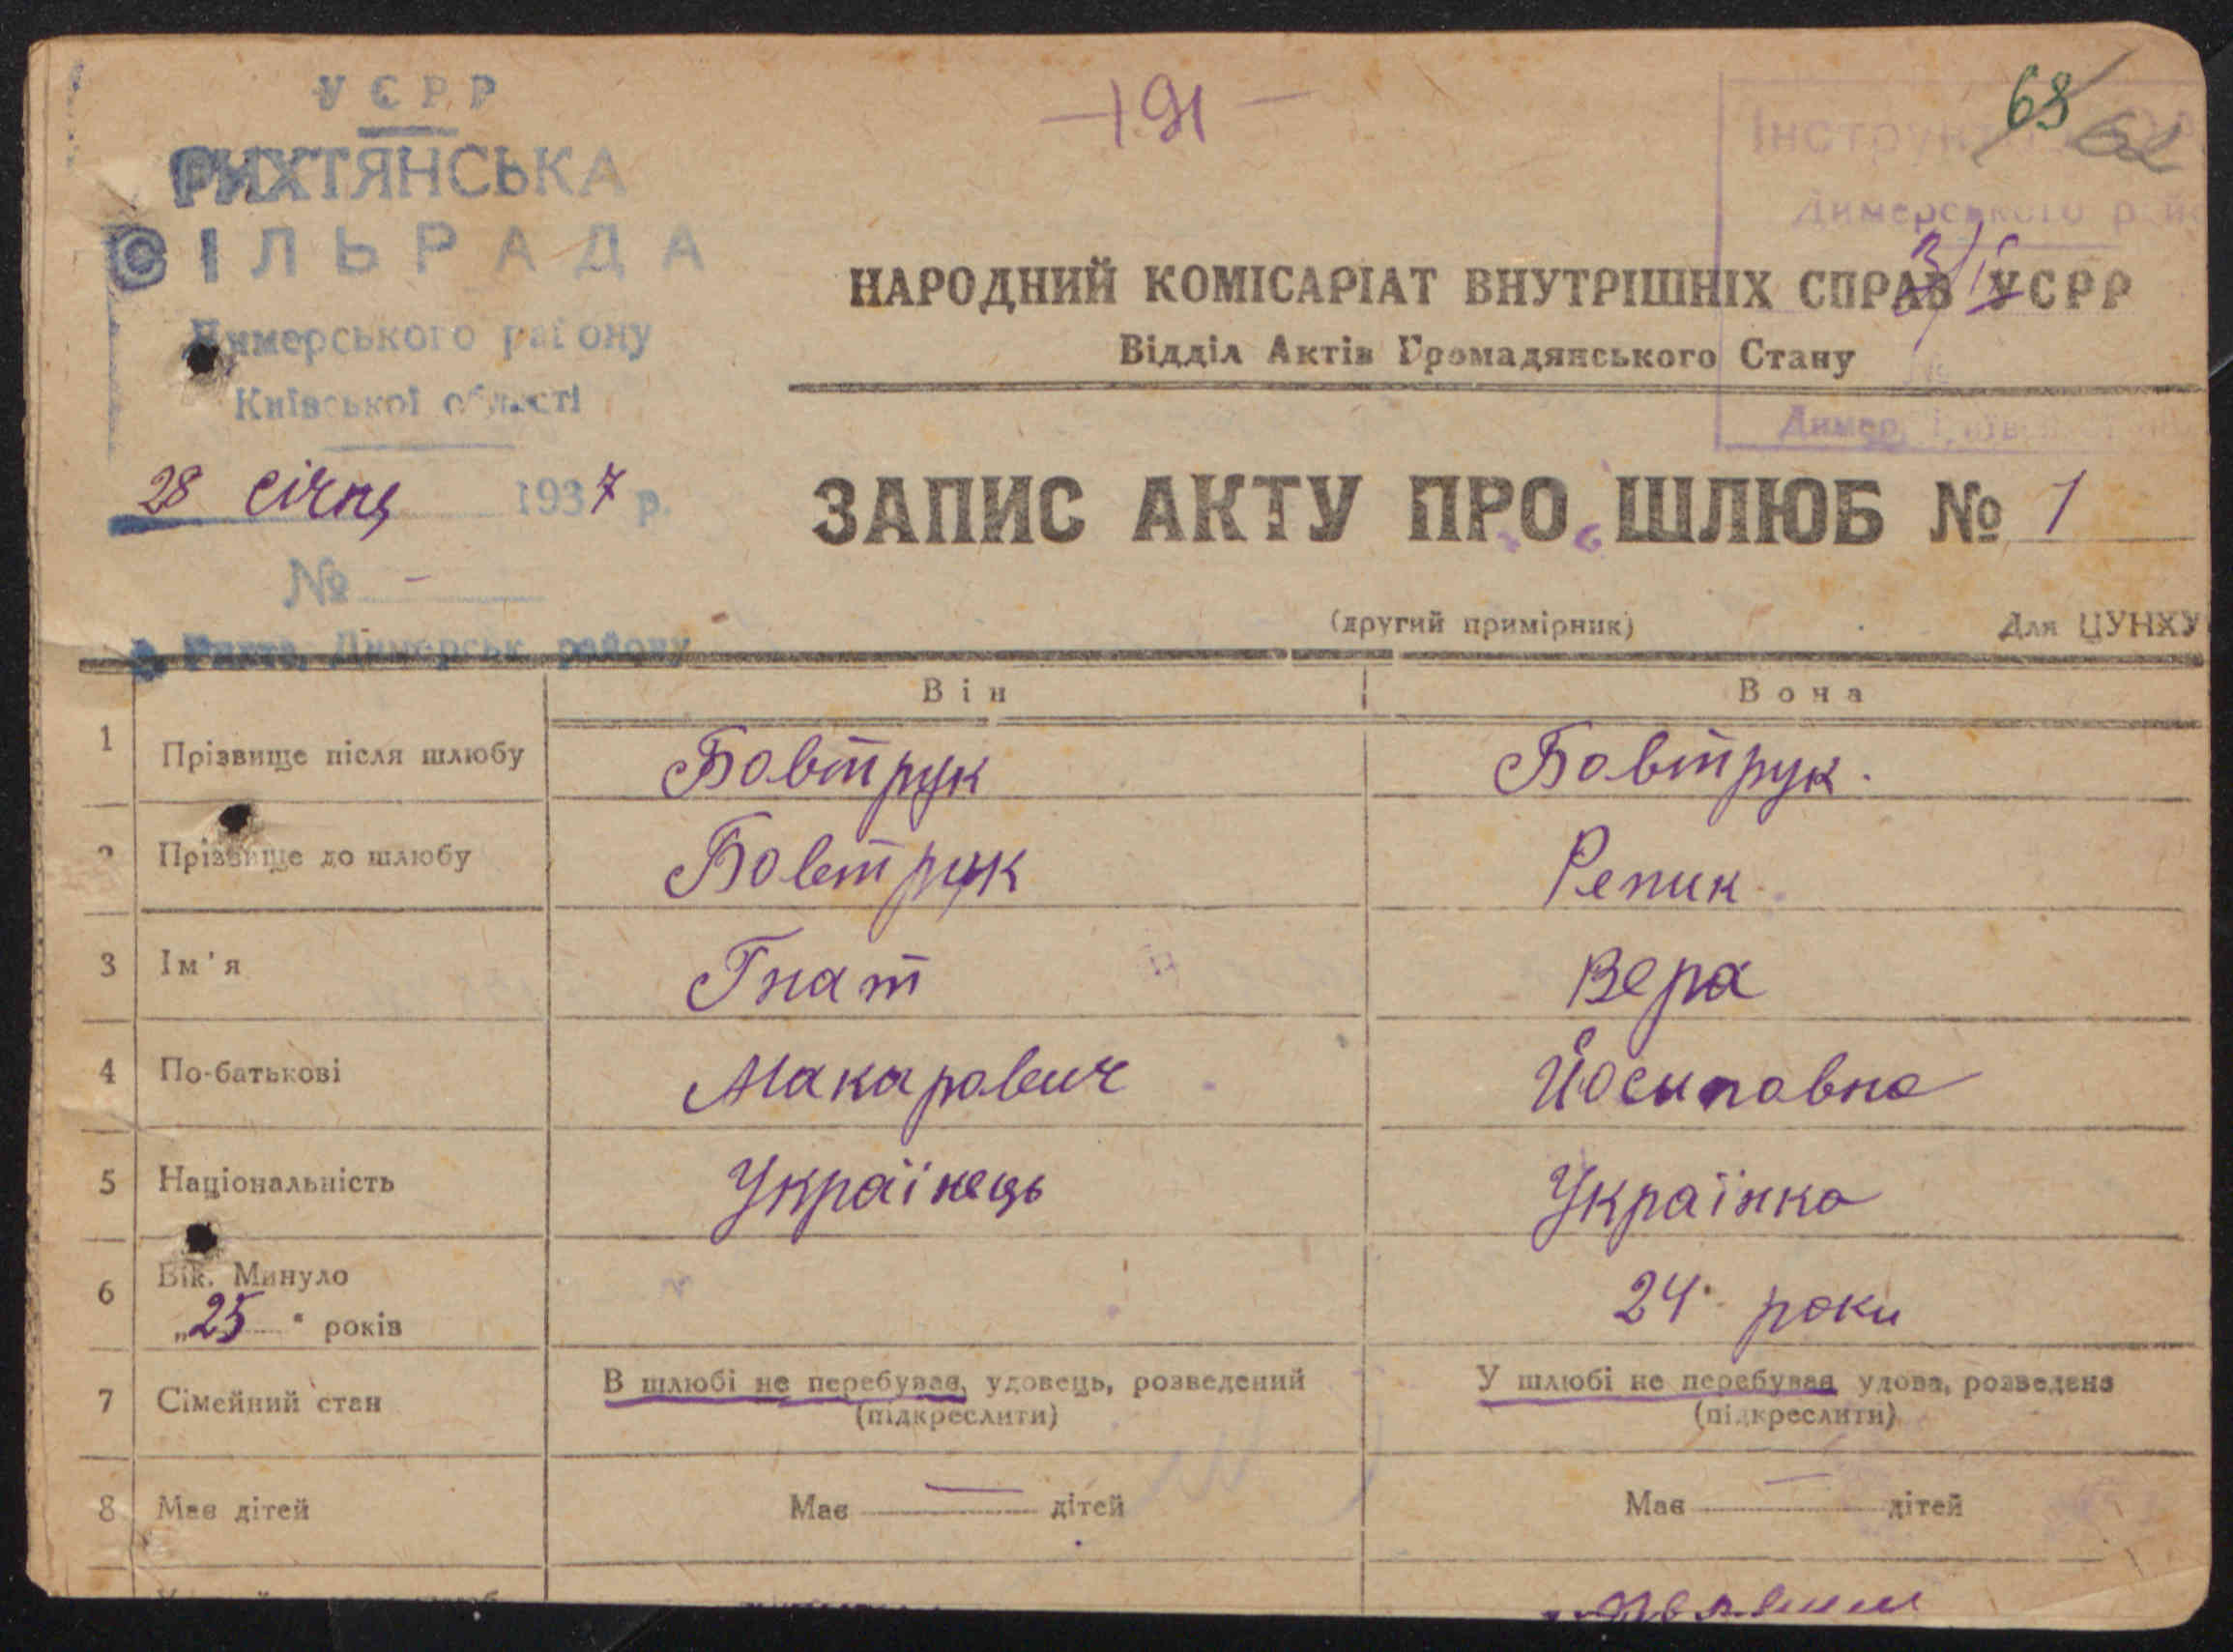 УСРР
РИХТЯНСЬКА
СІЛЬРАДА
Димерського району
Київської області
28 січня 1937 р.
№ -
с. Рихта, Димерськ. району
-191-
68
62
Димерського
Димер,
НАРОДНИЙ КОМІСАРІАТ ВНУТРІШНІХ СПРАВ УСРР
Відділ Актів Громадянського Стану
ЗАПИС АКТУ ПРО ШЛЮБ № 1
(другий примірник) Для ЦУНХУ
Він Вона
1 Прізвище після шлюбу Бовтрук Бовтрук.
2 Прізвище до шлюбу Бовтрук Репик
3 Ім'я Гнат Вера
4 По-батькові Макарович Йосиповна
5 Національність Українець Українка
6 Вік. Минуло
„25" років 24 роки
7 Сімейний стан В шлюбі не перебував, удовець, розведений У шлюбі не перебувая удова, розведена
(підкреслити) (підкреслити)
8 Має дітей Має — дітей Має — дітей